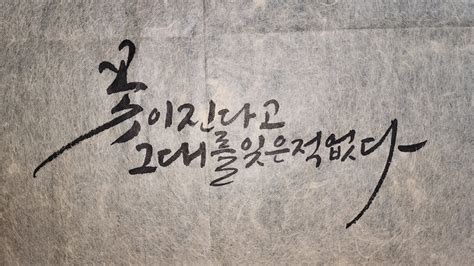 꽃이진다고
그대를잊은적없다